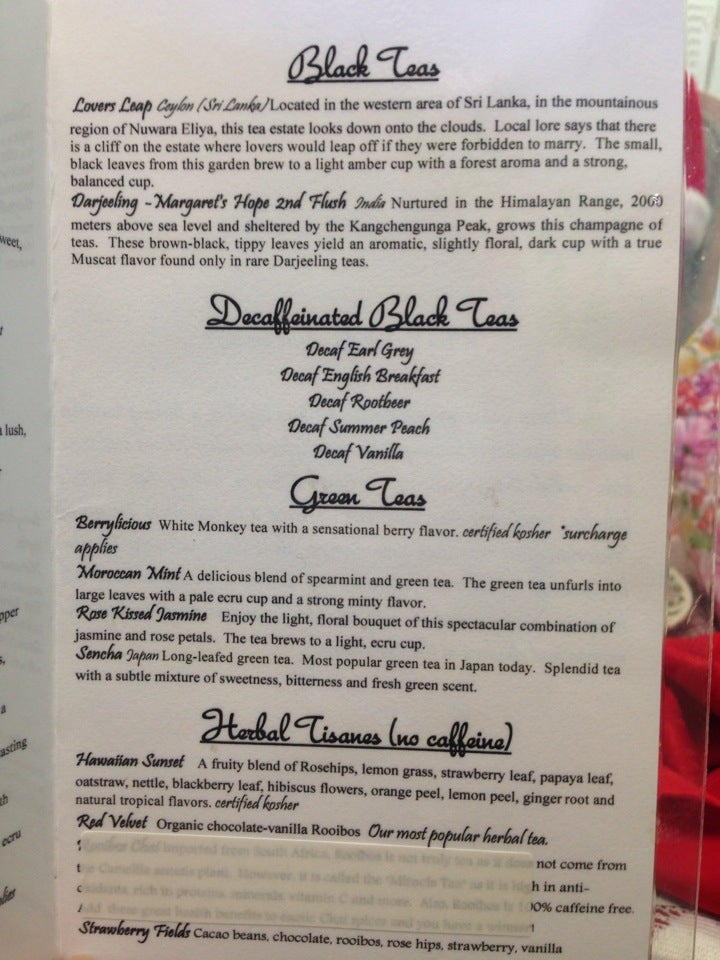 Black Teas
Lovers Leap Ceylon (Sri Lanka) Located in the western area of Sri Lanka, in the mountainous
region of Nuwara Eliya, this tea estate looks down onto the clouds. Local lore says that there
is a cliff on the estate where lovers would leap off if they were forbidden to marry. The small,
black leaves from this garden brew to a light amber cup with a forest aroma and a strong,
balanced cup.
Darjeeling ~Margaret's Hope 2nd Flush India Nurtured in the Himalayan Range, 2000
meters above sea level and sheltered by the Kangchengunga Peak, grows this champagne of
teas. These brown-black, tippy leaves yield an aromatic, slightly floral, dark cup with a true
Muscat flavor found only in rare Darjeeling teas.
Decaffeinated Black Teas
Decaf Earl Grey
Decaf English Breakfast
Decaf Rootbeer
Decaf Summer Peach
Decaf Vanilla
Green Teas
Berrylicious White Monkey tea with a sensational berry flavor. certified kosher *surcharge
applies
Moroccan Mint A delicious blend of spearmint and green tea. The green tea unfurls into
large leaves with a pale ecru cup and a strong minty flavor.
Rose Kissed Jasmine Enjoy the light, floral bouquet of this spectacular combination of
jasmine and rose petals. The tea brews to a light, ecru cup.
Sencha Japan Long-leafed green tea. Most popular green tea in Japan today. Splendid tea
with a subtle mixture of sweetness, bitterness and fresh green scent.
Herbal Tisanes (no caffeine)
Hawaiian Sunset A fruity blend of Rosehips, lemon grass, strawberry leaf, papaya leaf,
oatstraw, nettle, blackberry leaf, hibiscus flowers, orange peel, lemon peel, ginger root and
natural tropical flavors. certified kosher
Red Velvet Organic chocolate-vanilla Rooibos Our most popular herbal tea.
Chai imported from South Africa, Rooibos is not truly tea as it does not come from
the Camellia plant. However, it is called the "Miracle Tea" as it is high in anti-
rich in proteins, minerals, vitamin C and more. Also, Rooibos is 100% caffeine free.
Add these great health benefits to Chai spices and you have a winner!
Strawberry Fields Cacao beans, chocolate, rooibos, rose hips, strawberry, vanilla
weet,
lush,
pper
s,
a
asting
th
ecru